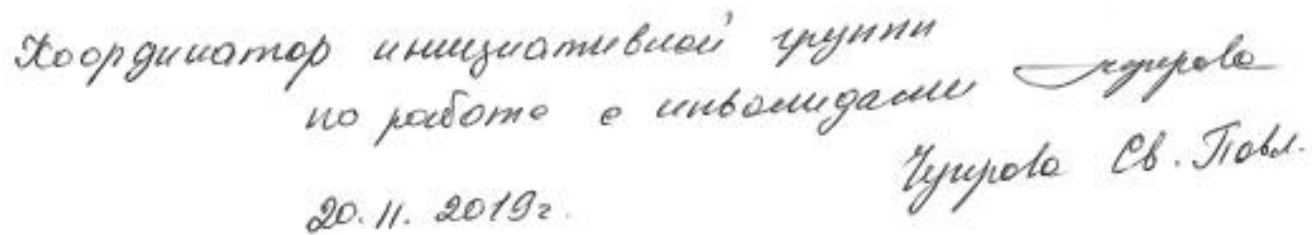 Координатор инициативной группи
по работе с инвалидами
Св. Павл.
20.11.2019г.